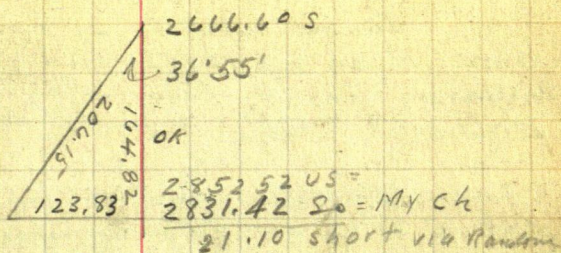 2666.60 S
36°55'
206.15
164.82
OK
2852 52 US =
123.83
2831.42 So = My ch
21.10 short via Random